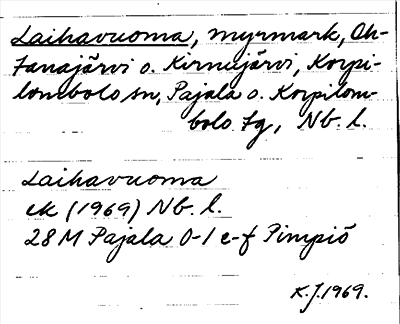 Laihavuoma, myrmark, Oh-
tanajärvi o. Kirnujärvi, Korpi-
lombolo sn, Pajala o. Korpilom-
bolo tg, Nb. l.
Laihavuoma
ek (1969) Nb. l.
28 M Pajala 0-1 e-f Pimpiö
K.J. 1969.